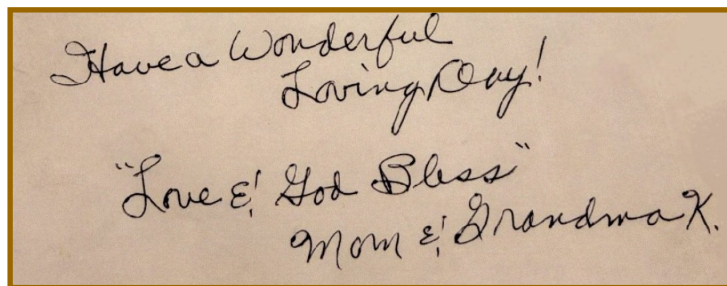 Have a Wonderful
Loving Day!
"Love & God Bless"
Mom & Grandma K.